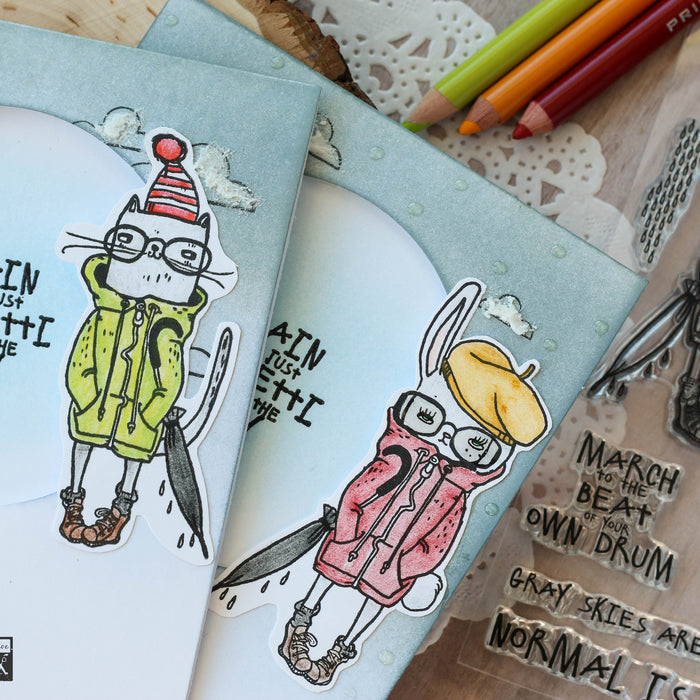 AIN
JUST
ETTI
THE
AIN
JUST
ETTI
THE
PRI
MARCH
TO THE
BEAT
OF YOUR
OWN DRUM
GRAY SKIES ARE
NORMAL IS